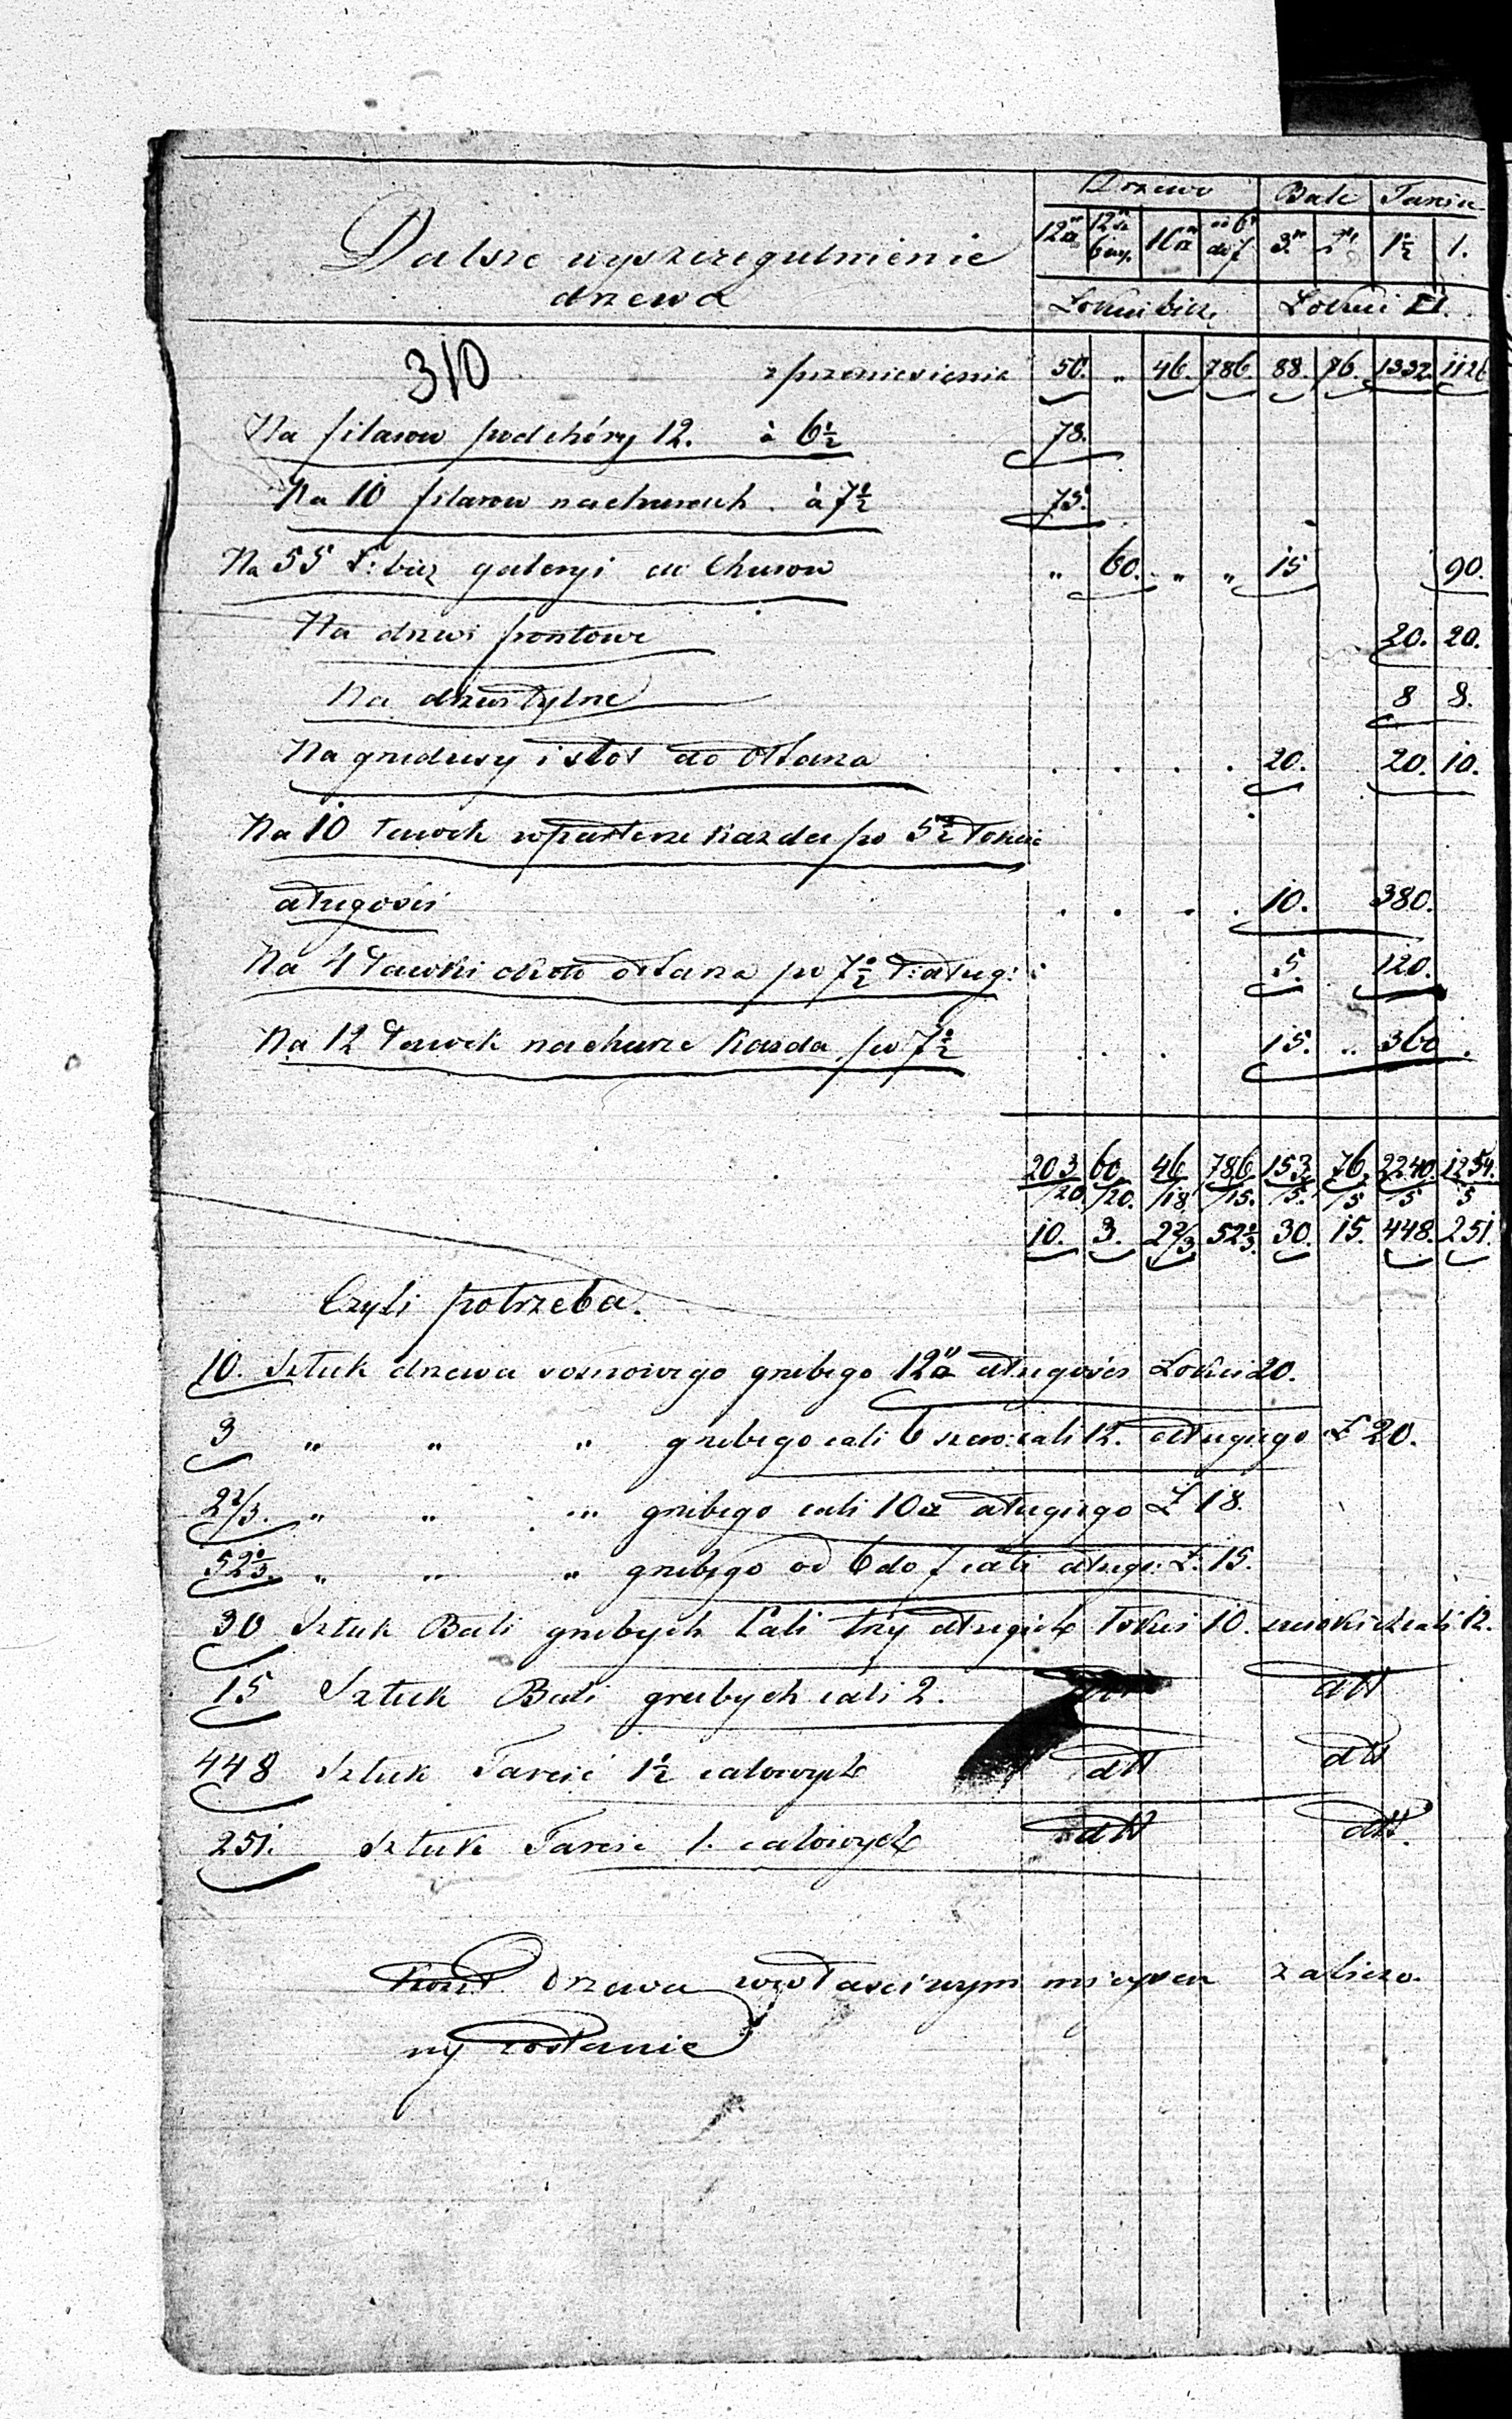 Drzewo Bale Tarcic
12a 12 sz 6 10a od 6 do 7 3" 2" 1½ 1.
Dalsze wyszczegulnienie
drzewa
Łokci bież. Łokci
310
z przeniesienia 50. " 46. 786. 88. 76. 1332. 1126
Na filarow pod chóry 12. à 6½ 78.
Na 10 filarow na churach. à 7½ 75.
Na 55 Ł: bież galeryi do Churow " 60. " " 15 90.
Na drzwi frontowe 20. 20.
Na drzwi tylne 8 8.
Na gradusy i stoł do Ołtarza . . . . 20. 20. 10.
Na 10 ławek w parterze każda po 5½ łokci
długości . . . . 10. 380.
Na 4 ławki około ołtarza po 7½ Ł: dług: 5. 120.
Na 12 ławek na churze każda po 7½ . . . 15. " 360.
203 60. 46 786 153. 76. 2240. 1254.
/20. /20. /18. /15. /5. /5 /5 5
10. 3. 2⅔ 52⅔. 30. 15. 448. 251.
Czyli potrzeba.
10. Sztuk drzewa sosnowego grubego 12a długości Łokci 20.
3 " " " grubego cali 6 szero: cali 12. długiego Ł 20.
2⅔. " " " grubego cali 10a długiego Ł 18.
52⅔. " " " grubego od 6 do 7 cali długo: Ł. 15.
30 Sztuk Bali grubych Cali trzy długich łokci 10. szerokich cali 12.
15 Sztuk Bali grubych cali 2. dtt
448 Sztuk Tarcic 1½ calowych dtt dtt
251. Sztuk Tarcic 1. calowych dtt dtt.
Koszt Drzewa wwłaściwym miejscu zaliczo.
ny zostanie